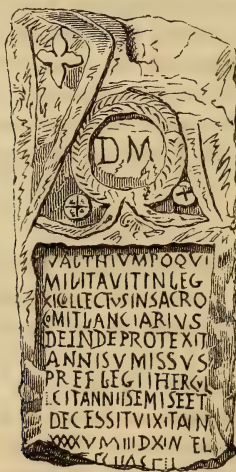 D M
VAL THIVMPO QVI
MILITAVIT IN LEG
XI CL LECTVS IN SACRO
COMIT LANCIARIVS
DEINDE PROTEXIT
ANNIS V MISSVS
PREF LEG II HERCVL
ANN II SEMISE ET
DECESSIT VIXIT A N
XXXXV M III D XI